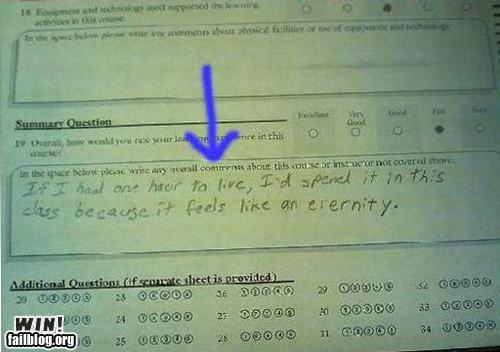 18 Equipment and technology used supported the learning
activities in this course.
In the space below please write any comments about physical facilities or use of equipment and technology.
Summary Question
Excellent Very Good Good Fair Poor
19 Overall, how would you rate your learning experience in this
course?
In the space below please write any overall comments about this course or instructor not covered above.
If I had one hour to live, I'd spend it in this
class because it feels like an eternity.
Additional Questions (if separate sheet is provided)
20 ①②③④⑤ 23 ①②③④⑤ 26 ①②③④⑤ 29 ①②③④⑤ 32 ①②③④⑤
24 ①②③④⑤ 27 ①②③④⑤ 30 ①②③④⑤ 33 ①②③④⑤
25 ①②③④⑤ 28 ①②③④⑤ 31 ①②③④⑤ 34 ①②③④⑤
WIN!
failblog.org